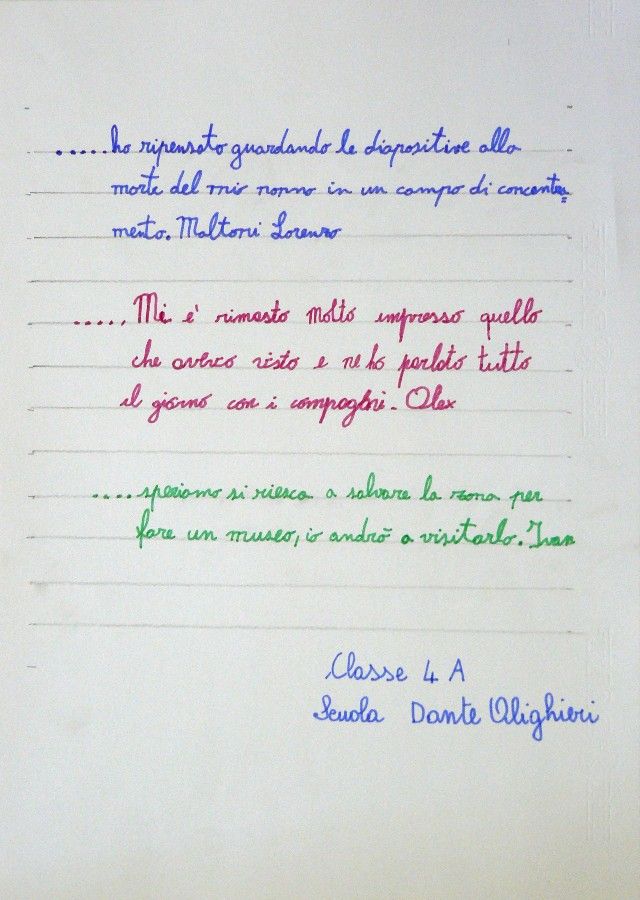 .....ho ripensato guardando le diapositive alla
morte del mio nonno in un campo di concentra=
mento. Maltoni Lorenzo
..... Mi è rimasto molto impresso quello
che avevo visto e ne ho parlato tutto
il giorno con i compagni. Alex
....speriamo si riesca a salvare la zona per
fare un museo, io andrò a visitarlo. Ivan
Classe 4 A
Scuola Dante Alighieri